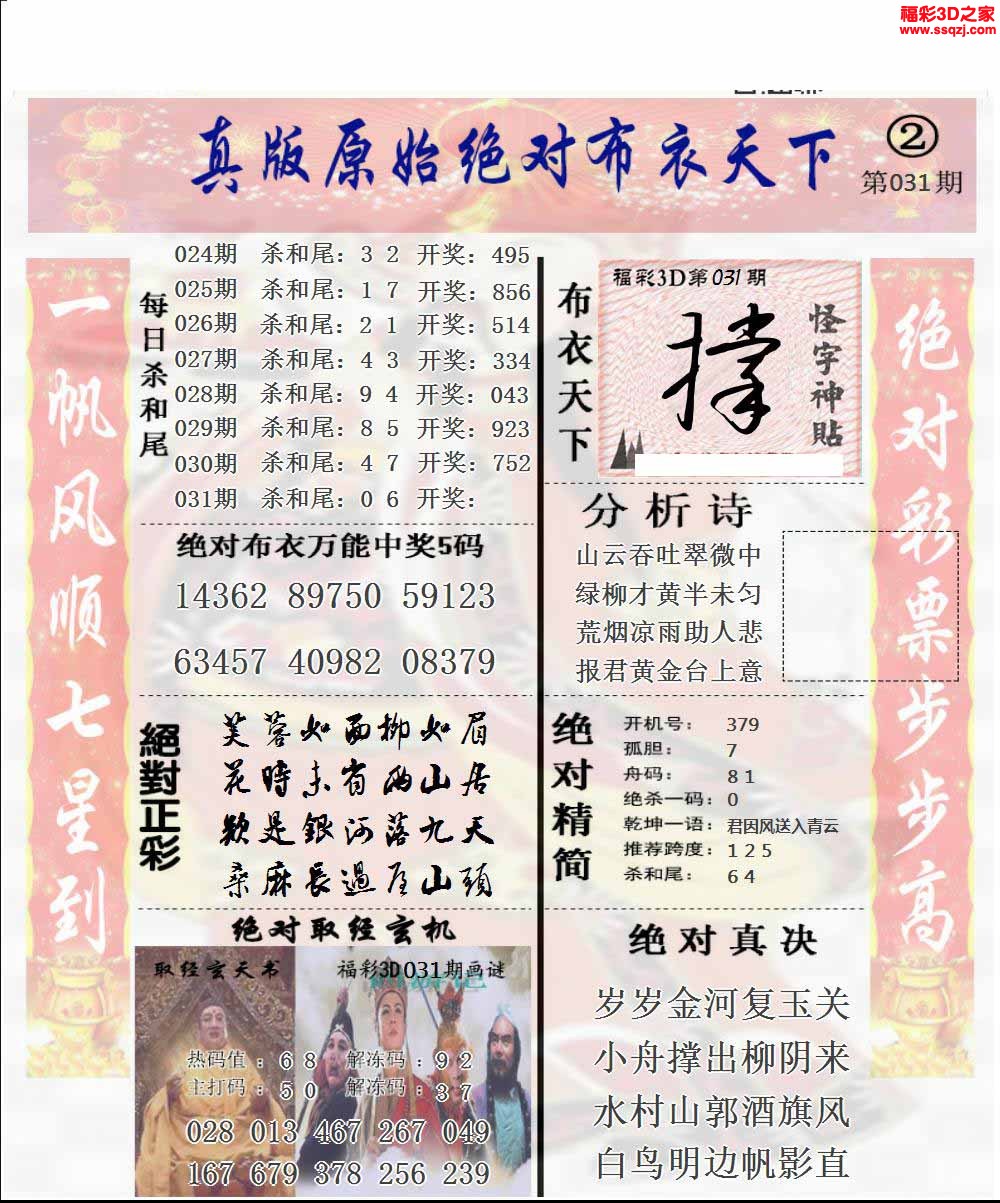 福彩3D之家
www.ssqzj.com
真版原始绝对布衣天下
②
第031期
一帆风顺七星到
每日杀和尾
024期 杀和尾：3 2 开奖：495
025期 杀和尾：1 7 开奖：856
026期 杀和尾：2 1 开奖：514
027期 杀和尾：4 3 开奖：334
028期 杀和尾：9 4 开奖：043
029期 杀和尾：8 5 开奖：923
030期 杀和尾：4 7 开奖：752
031期 杀和尾：0 6 开奖：
绝对布衣万能中奖5码
14362 89750 59123
63457 40982 08379
絕對正彩
芙蓉如面柳如眉
花時未省兩山居
欵是銀河落九天
桑麻長過屋山頭
绝对取经玄机
取经玄天书
福彩3D031期画谜
热码值：6 8 解冻码：9 2
主打码：5 0 解冻码：3 7
028 013 467 267 049
167 679 378 256 239
布衣天下
福彩3D第031期
撑
怪字神貼
分析诗
山云吞吐翠微中
绿柳才黄半未匀
荒烟凉雨助人悲
报君黄金台上意
绝对精简
开机号：379
孤胆：7
舟码：8 1
绝杀一码：0
乾坤一语：君因风送入青云
推荐跨度：1 2 5
杀和尾：6 4
绝对真决
岁岁金河复玉关
小舟撑出柳阴来
水村山郭酒旗风
白鸟明边帆影直
绝对彩票步步高